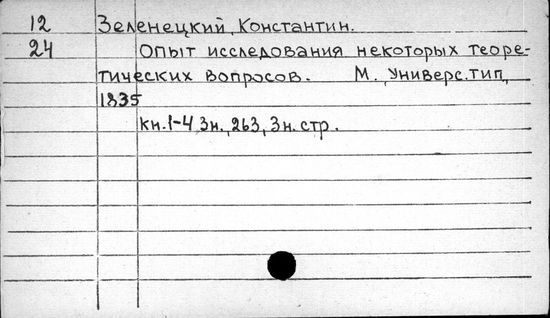 12 Зеленецкий, Константин.
24 Опыт исследования некоторых теоре-
тических вопросов. М., Универс. тип,
1835
кн. 1-4 Зн., 263, Зн. стр.